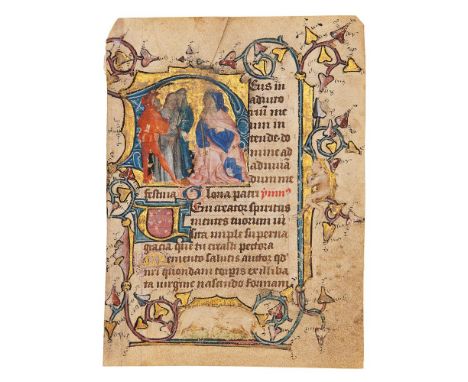 eus in
adiuto
riū me
um in
tende do
mine ad
adiuuā
dum me
festina Gloria patri ymn⁹
Veni creator spiritus
mentes tuorum ui
sita imple superna
gracia que tu creasti pectora
Memento salutis auctor qd'
nri quondam corpis ex illiba
ta uirgine nascendo formam